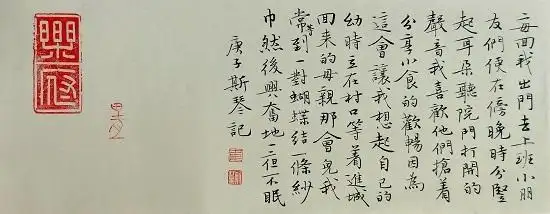 每囬我出門去上班小朋
友們便在傍晚時分豎
起耳朵聽院門打開的
聲音我喜歡他們搶着
分享小食的歡暢因為
這會讓我想起自己的
幼時立在村口等着進城
囬来的母親那會兒我
常等到一對蝴蝶結一條紗
巾然後興奮地一不眠
庚子斯琴記